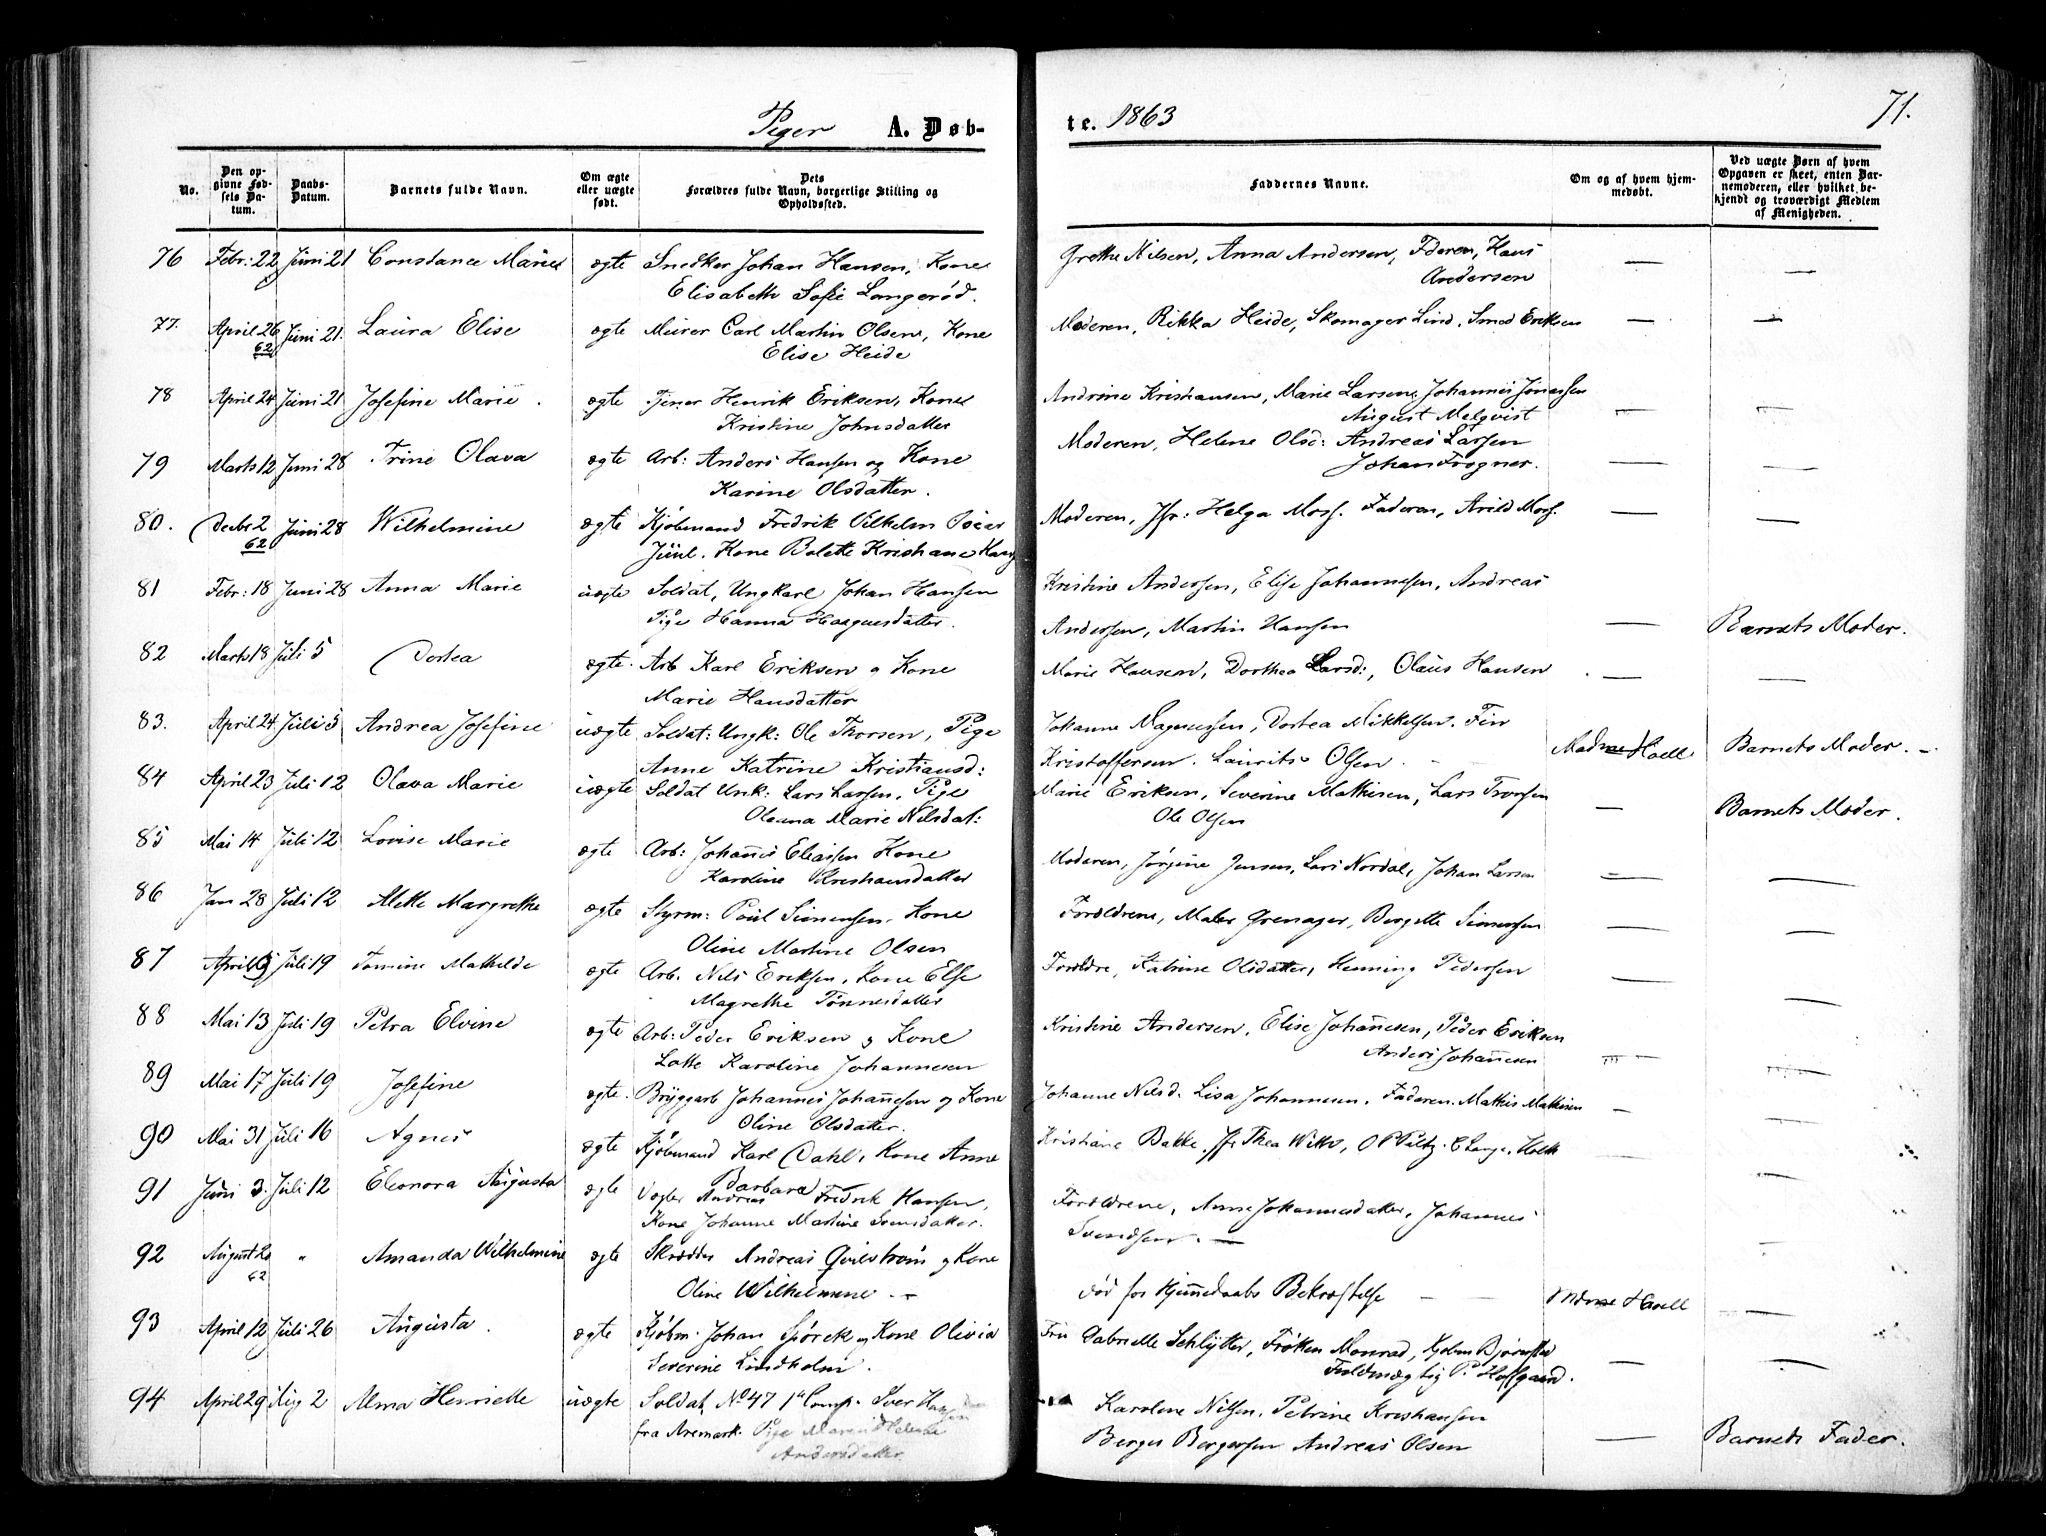 Piger A. Døb-
te. 1863 71.
No. Den opgivne Fødsels Datum. Daabs-Datum. Barnets fulde Navn. Om ægte eller uægte født. Dets Forældres fulde Navn, borgerlige Stilling og Opholdssted. Faddernes Navne. Om og af hvem hjemmedøbt. Ved uægte Børn af hvem Opgaven er skeet, enten Barnemoderen, eller hvilket bekjendt og troværdigt Medlem af Menigheden.
76 Febr: 22 Juni 21 Constance Marie ægte Snedker Johan Hansen, Kone Grethe Nilsen, Anna Andersen, Faderen, Hans — —
Elisabeth Sofie Langerød. Andersen
77. April 26 Juni 21. Laura Elise ægte Murer Carl Martin Olsen, Kone Moderen, Rikka Heide, Skomager Lind, Smed Eriksen — —
62 Elise Heide
78 April 24 Juni 21 Josefine Marie . ægte Tjener Henrik Eriksen, Kone Andrine Kristiansen, Marie Larsen, Johannes Jonassen
Kristine Johnsdatter August Melqvist — —
79 Marts 12 Juni 28 Trine Olava ægte Arb: Anders Hansen og Kone Moderen, Helene Olsd: Andreas Larsen
Karine Olsdatter. Johan Frogner. — —
80. Decbr 2 Juni 28 Wilhelmine ægte Kjøbmand Fredrik Vilhelm Moderen, Jfr: Helga Moss. Faderen, Arild Moss. — —
62 Juul. Kone Bolette Kristiane
81 Febr: 18 Juni 28 Anna Marie uægte Soldat, Ungkarl Johan Hansen Kristine Andersen, Elise Johannesen, Andreas
Pige Hanna Haagensdatter. Andersen, Martin Hansen — Barnets Moder.
82 Marts 18 Juli 5 Dortea ægte. Arb Karl Eriksen og Kone Marie Hansen, Dorthea Larsd:, Olaus Hansen — —
Marie Hansdatter
83. April 24 Juli 5 Andrea Josefine uægte Soldat: Ungk: Ole Thorsen, Pige Johanne Magnussen, Dortea Mikkelsen. Fin
Anne Katrine Kristiansd: Kristoffersen. Laurits Olsen. Madme Hoell Barnets Moder. —
84 April 23 Juli 12 Olava Marie uægte Soldat Unk: Lars Larsen, Pige Marie Eriksen, Severine Mathisen, Lars Tronsen — Barnets Moder.
Oleana Marie Nilsdat: Ole Olsen
85 Mai 14 Juli 12 Lovise Marie ægte Arb: Johanes Eliassen Kone Moderen, Jørgine Jensen, Lars Nordal, Johan Larsen — —
Karoline Kristiansdatter
86 Jan 28 Juli 12 Alette Margrethe ægte Styrm: Poul Simensen. Kone Forældrene, Maler Grenager, Bergette Simensen — —
Oline Martine Olsen
87 April 5 Juli 19 Tomine Mathilde ægte Arb. Nils Eriksen, Kone Else Forældre, Katrine Olsdatter, Henning Pedersen — —
Magrethe Tønnesdatter
88 Mai 13 Juli 19 Petra Elvine ægte Arb: Peder Eriksen og Kone Kristine Andersen, Elise Johanesen, Peder Eriksen
Lotte Karoline Johannesen Anders Johanesen — —
89 Mai 17 Juli 19 Josefine ægte. Bryggarb Johannes Johanesen og Kone Johanne Nilsd. Lisa Johannesen. Faderen. Mathis Mathisen — —
Oline Olsdatter.
90 Mai 31 Juli 16 Agnes ægte Kjøbmand Karl Dahl, Kone Anne Kristiane Bakke. Jfr Thea — —
Barbara
91 Juni 3. Juli 12 Eleonora Augusta ægte Vogter Andreas Fredrik Hansen, Forældrene, Anne Johannesdatter, Johannes
Kone Johanne Martine Svensdatter. Svendsen. — —
92 August 20 „ Amanda Wilhelmine ægte Skrædder Andreas Qvilstrøm og Kone
62 Oline Wilhelmine — Død før Hjemmedaabs Bekræftelse — — Mdme Hoell —
93 April 12 Juli 26 Augusta. ægte Kjøbm. Johan Spørck og Kone Olivia Fru Gabrielle Schlytter, Frøken Monrad, Kjøbm
Severine Lindholm. Fuldmægtig P. Hofgaard. — —
94 April 29 Aug 2 Alma Henriette uægte Soldat No 47 1ste Comp. Iver Hansen Karolene Nilsen, Petrine Kristiansen
fra Aremark. Pige Maren Helene Berger Bergersen Andreas Olsen — Barnets Fader.
Andersdatter